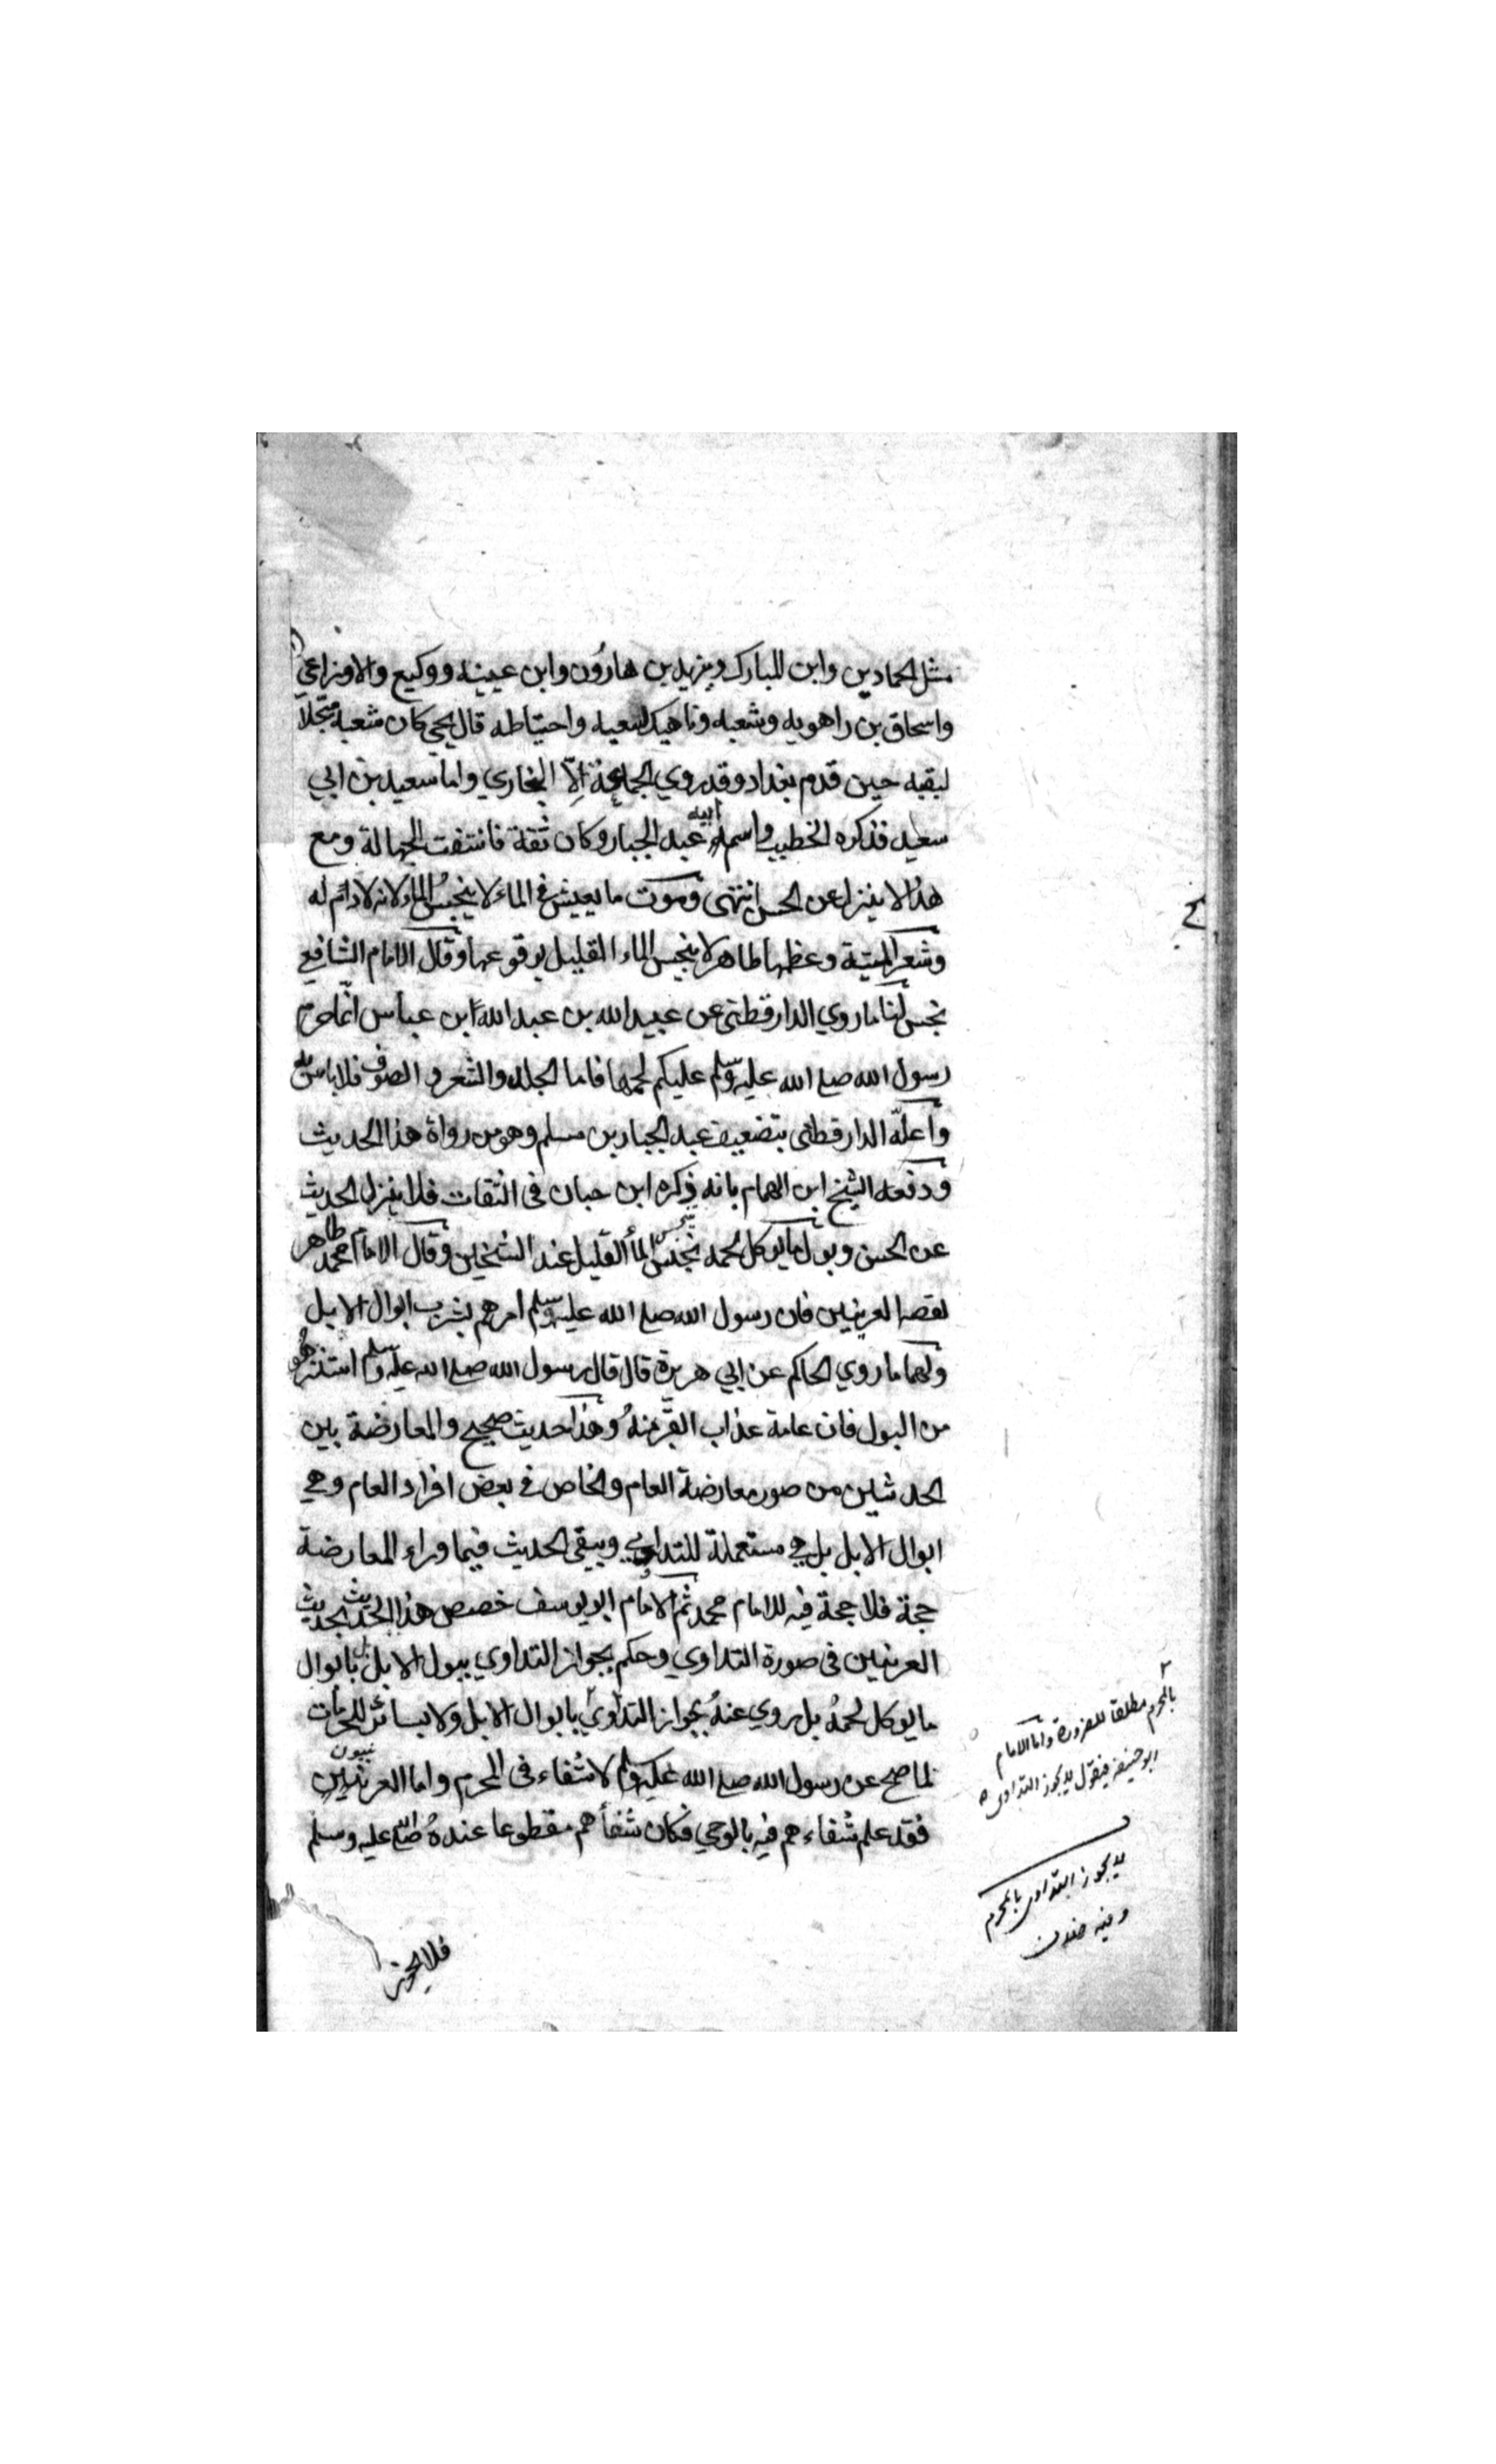 مثل الحمادين وابن المبارك ويزيد بن هارون وابن عيينة ووكيع والاوزاعي
واسحاق بن راهويه وشعبه وناهيك لشعبه واحتياطه قال يحيى كان شعبه مبجلا
لبقيه حين قدم بغداد وقد روي الجماعة الّا البخاري واما سعيد بن ابي
سعيد فذكره الخطيب واسم ابيه عبد الجبار وكان ثقة فانتفت الجهالة ومع
هذا لا ينزل عن الحسن انتهى وموت ما يعيش في الماء لا ينجس الماء لانه لا دم له
وشعر الميتة وعظمها طاهر لا ينجس الماء القليل بوقوعها وقال الامام الشافعي
نجس لنا ما روي الدارقطني عن عبيد الله بن عبد الله ابن عباس انما حرم
رسول الله صلع الله عليه وسلم عليكم لحمها فاما الجلد والشعر والصوف فلا باس به
واعلّه الدارقطني بتضعيف عبد الجبار بن مسلم وهو من رواة هذا الحديث
ودفعه الشيخ ابن الهمام بانه ذكره ابن حبان في الثقات فلا ينزل الحديث
عن الحسن وبول ما يوكل لحمه نجس ينجس الماء القليل عند الشيخين وقال الامام محمد طاهر
لقصه العرنيين فان رسول الله صلع الله عليه وسلم امرهم بشرب ابوال الابل
ولهما ما روي الحاكم عن ابي هريرة قال قال رسول الله صلع الله عليه وسلم استنزهوا
من البول فان عامة عذاب القبر منه وهذا حديث صحيح والمعارضة بين
الحديثين من صور معارضة العام والخاص في بعض افراد العام وهي
ابوال الابل بل هي مستعملة للتداوي ويبقى الحديث فيما وراء المعارضة
حجة فلا حجة فيه للامام محمد ثم الامام ابو يوسف خصص هذا الحديث بحديث
العرنيين في صورة التداوي وحكم بجواز التداوي ببول الابل بابوال
ما يوكل لحمه بل روي عنه بجواز التداوي بابوال الابل ولا بسائر المحرمات
لما صح عن رسول الله صلع الله عليه وسلم لا شفاء في المحرم واما العرنيون
فقد علم شفاءهم فيه بالوحي فكان شفاهم مقطوعا عنده صلى الله عليه وسلم
فلا يجوز
بالمحرم مطلقا للضرورة واما الامام
ابو حنيفة فيقول لا يجوز التداوي
لا يجوز التداوي بالمحرم
وفيه